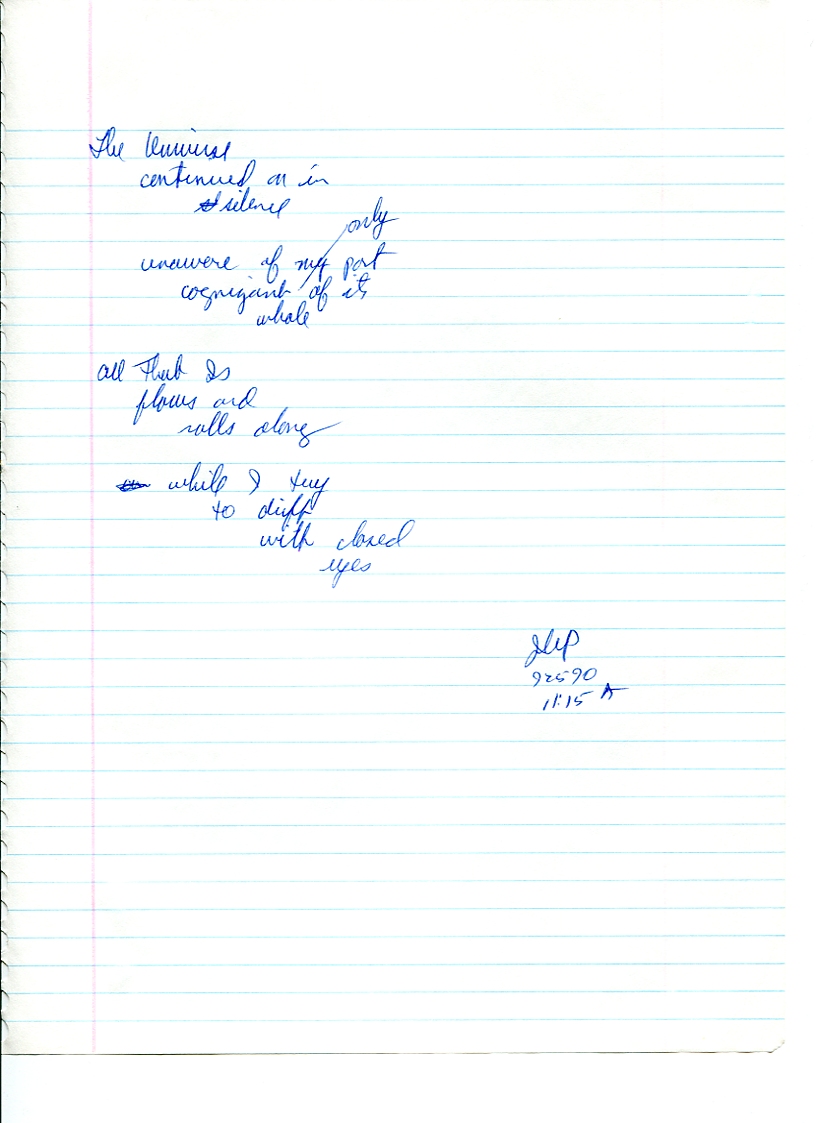 The Universe
continued on in
silence
only
unaware of my part
cognizant of its
whole
all That Is
flows and
rolls along
while I try
to drift
with closed
eyes
92590
11:15 A